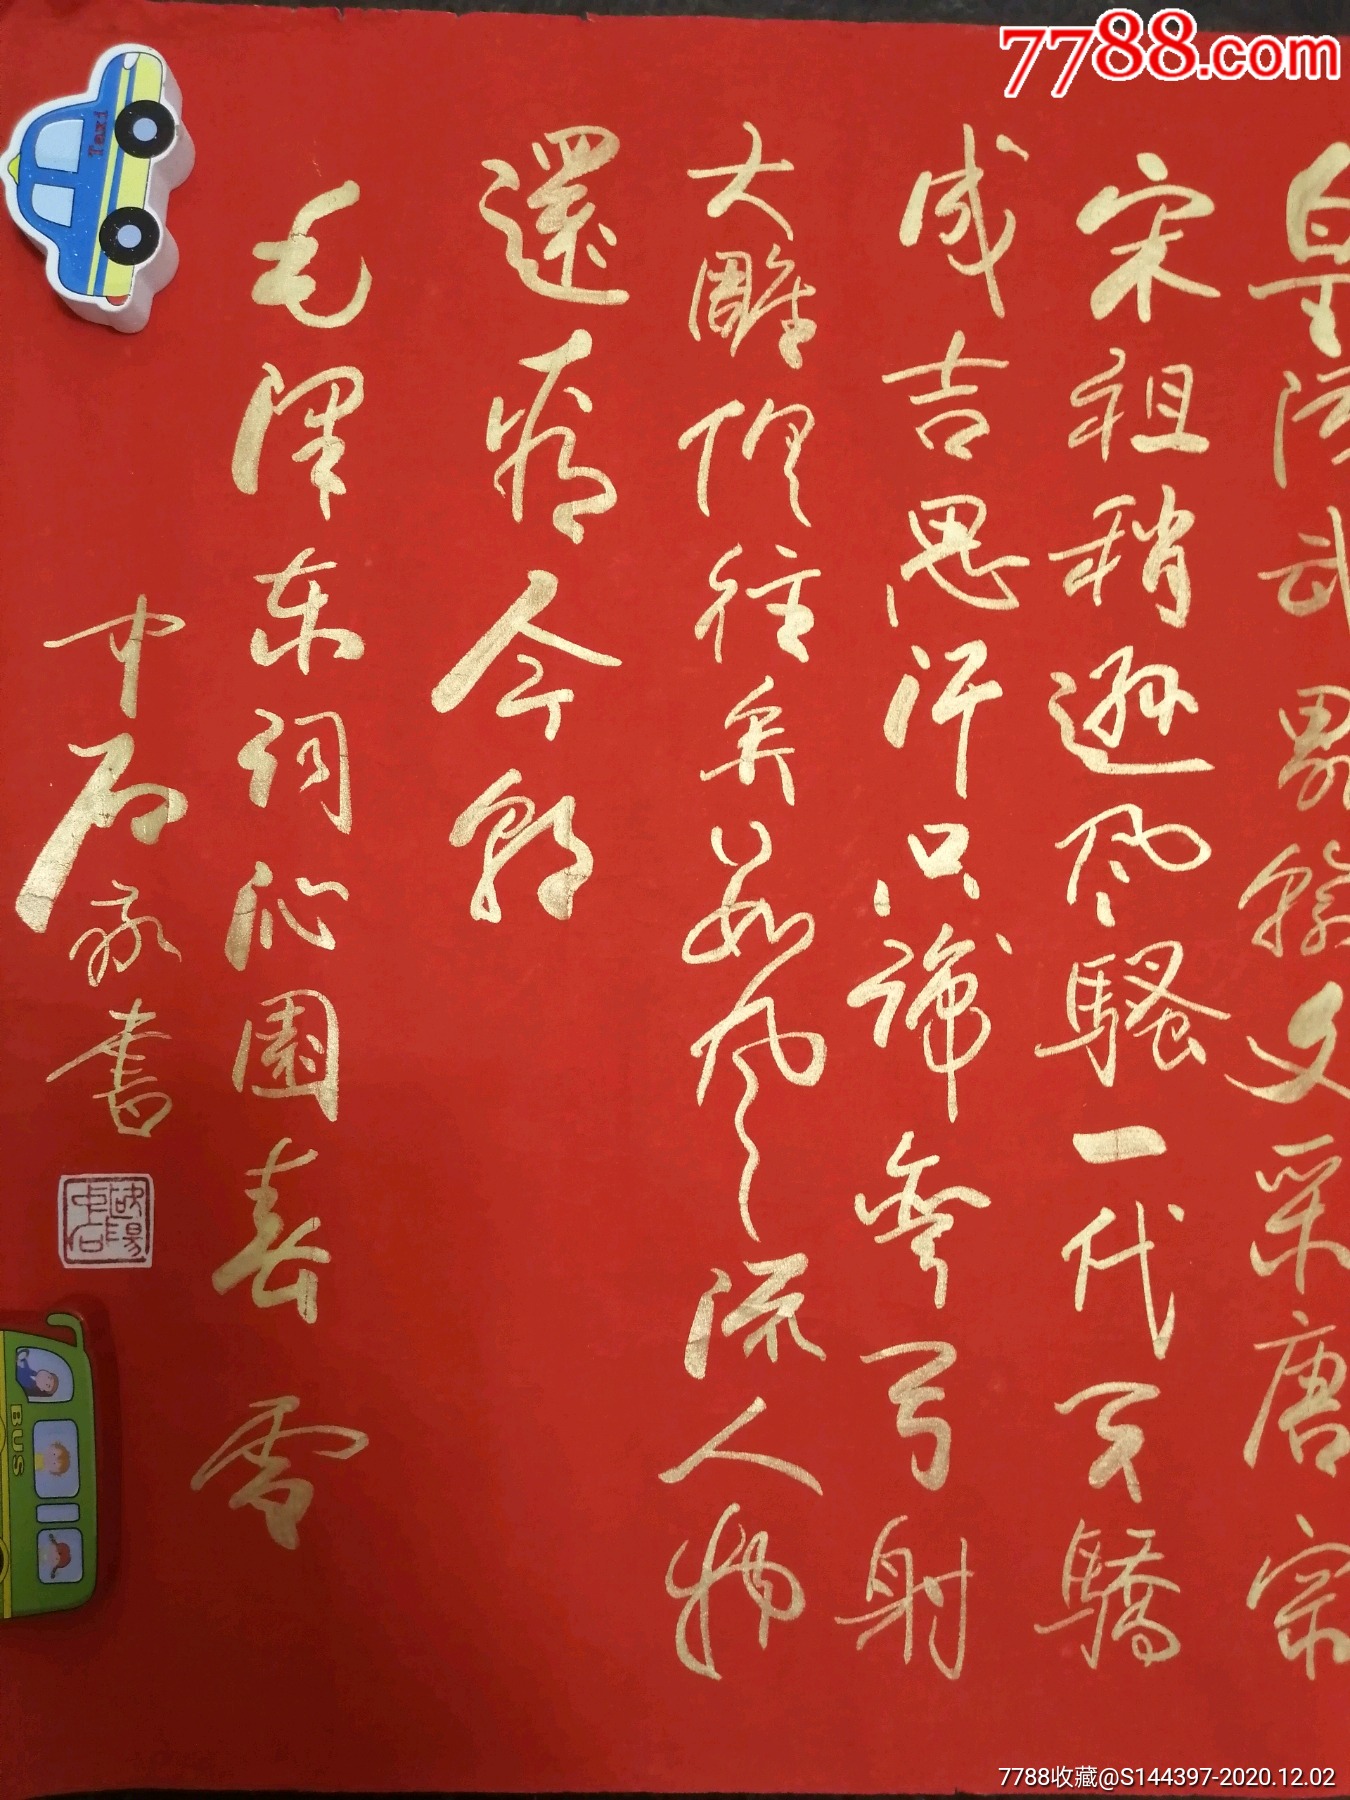 7788.com
皇漢武畧輸文采唐宗
宋祖稍遜风騷一代天驕
成吉思汗只識彎弓射
大雕俱往矣数风流人物
還看今朝
毛泽东词沁園春雪
中石書
欧陽中石
Taxi
BUS
7788收藏@S144397-2020.12.02